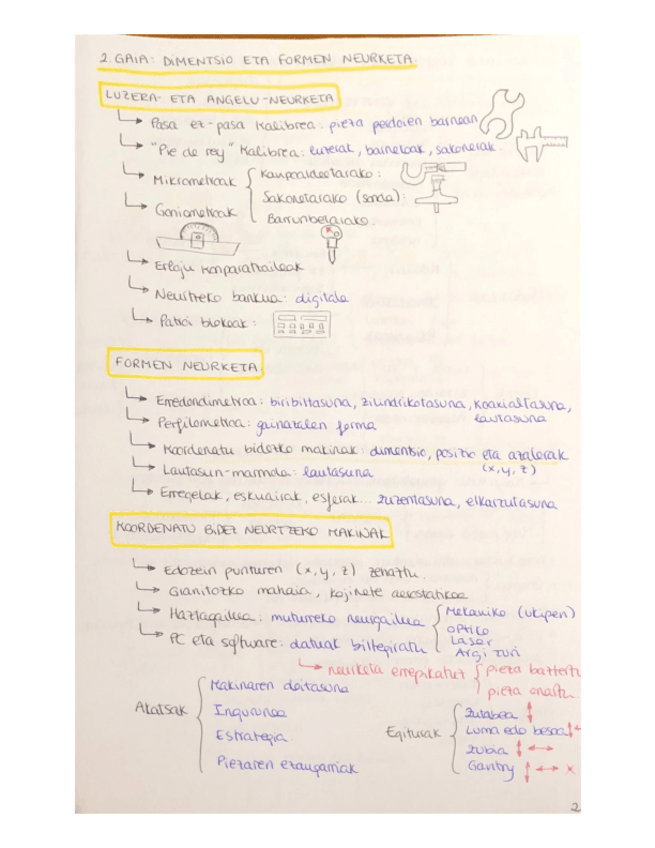 2. GAIA: DIMENTSIO ETA FORMEN NEURKETA
LUZERA- ETA ANGELU-NEURKETA
Pasa ez-pasa kalibrea: pieza perdoien barnean
"Pie de rey" kalibrea: luzerak, barnekoak, sakonerak.
Mikrometroak
Kanpoaldeetarako:
Sakonetarako (sonda):
Barrunbetarako.
Goniometroak
Erloju konparatzaileak
Neurtzeko bankua: digitala
Patroi blokeak:
FORMEN NEURKETA
Erredondimetroa: biribiltasuna, zilindrikotasuna, koaxialtasuna,
lautasuna
Perfilometroa: gainazalen forma
Koordenatu bidezko makinak: dimentsio, posizio eta azalerak
(x, y, z)
Lautasun-marmola: lautasuna
Erregelak, eskuairak, esferak... zuzentasuna, elkarzutasuna
KOORDENATU BIDEZ NEURTZEKO MAKINAK
Edozein punturen (x, y, z) zehaztu.
Granitozko mahaia, kojinete aerostatikoa
Haztagailua: muturreko neurgailua
Mekaniko (ukipen)
OPTIKO
LASER
Argi zuri
PC eta software: datuak biltegiratu
neurketa errepikatuz
pieza baztertu
pieza onartu
Akatsak
Makinaren doitasuna
Ingurunea
Estrategia
Piezaren ezaugarriak
Egiturak
Zutabea
Luma edo besoa
Zubia
Gantry x
2